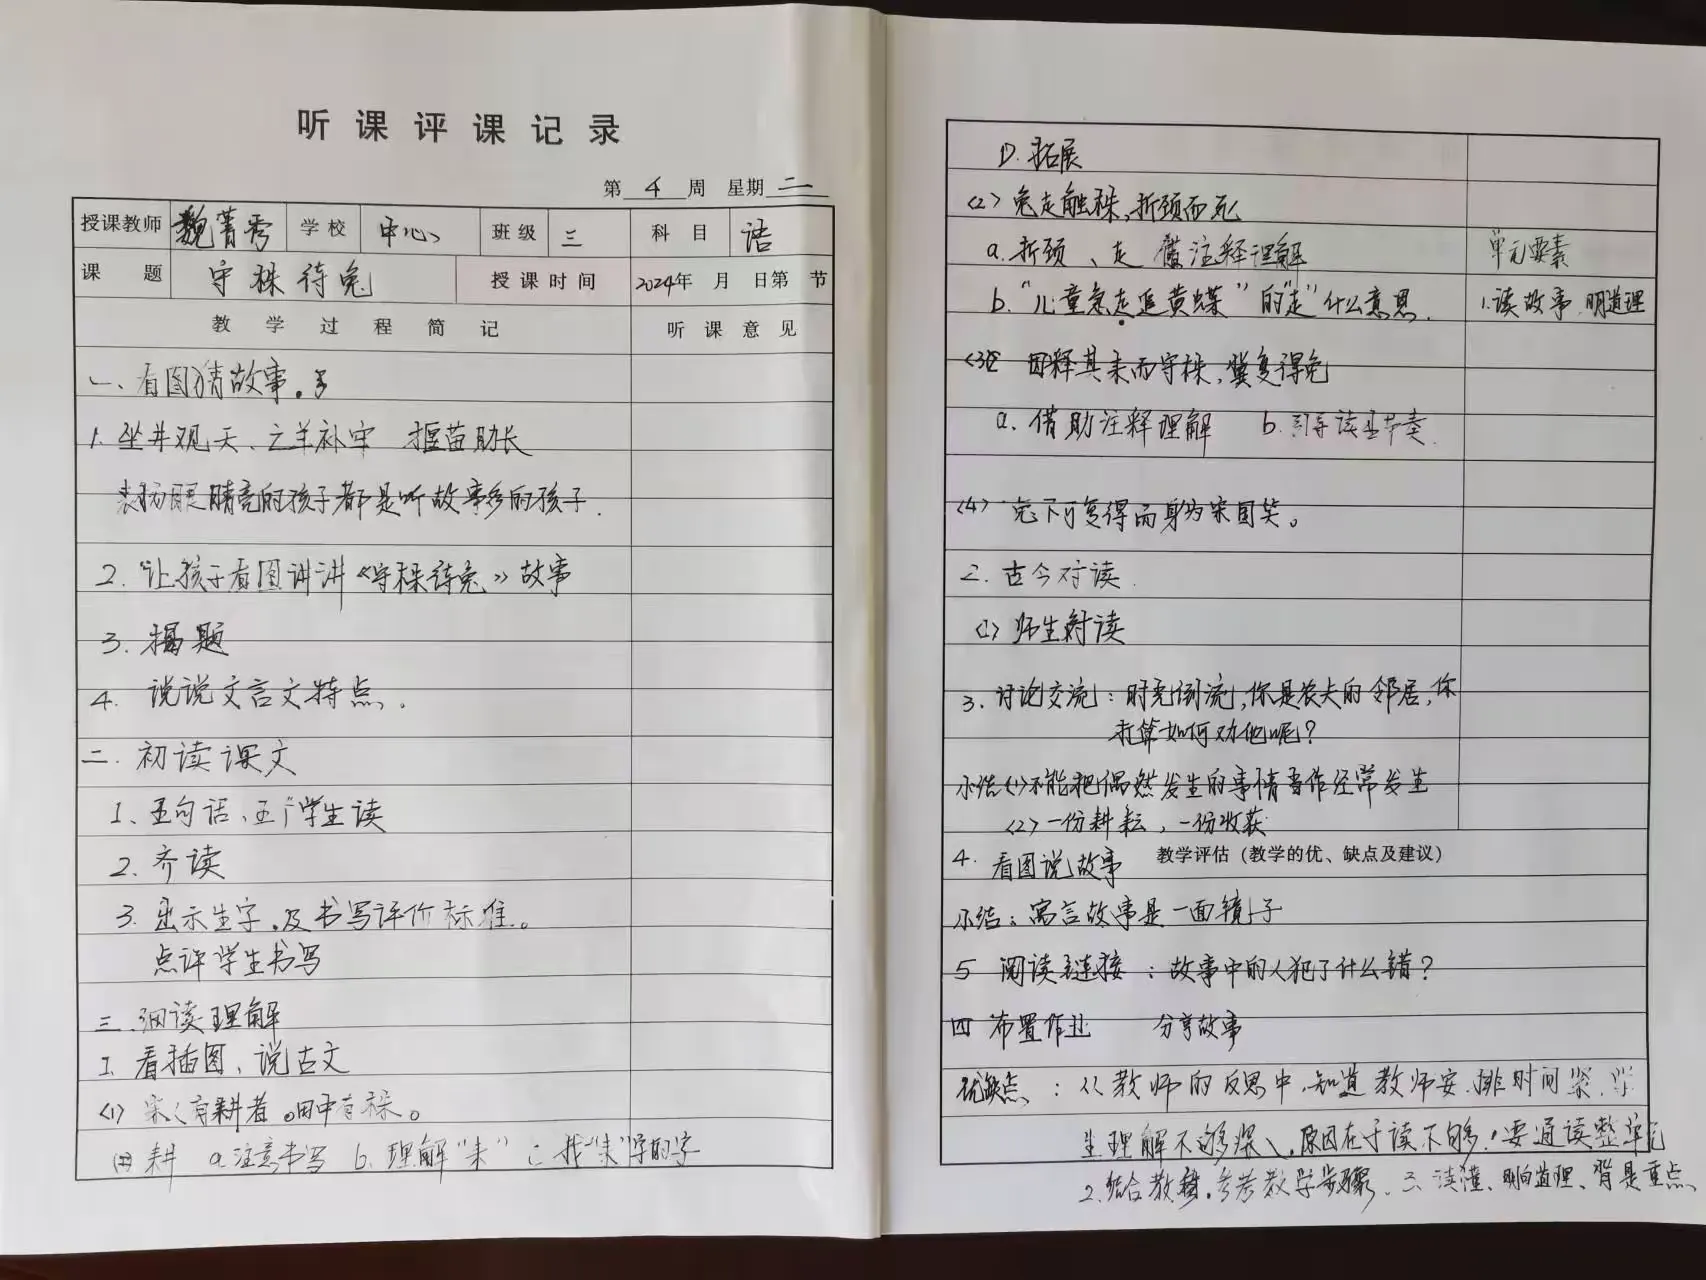 听课评课记录
第 4 周 星期 二
授课教师 魏菁秀 学校 中心 班级 三 科目 语
课题 守株待兔 授课时间 2024年 月 日第 节
教学过程简记 听课意见
一、看图猜故事。
1. 坐井观天、亡羊补牢 揠苗助长
表扬眼睛亮的孩子都是听故事多的孩子.
2. 让孩子看图讲讲《守株待兔》故事
3. 揭题
4. 说说文言文特点.
二. 初读课文
1、五句话、五个学生读
2. 齐读
3. 出示生字,及书写评价标准。
点评学生书写
三.细读理解
1. 看插图、说古文
(1) 宋人有耕者。田中有株。
耕 a.注意书写 b.理解“耒” c 找“耒”字的字
D. 拓展
(2) 兔走触株,折颈而死
a. 折颈、走 借注释理解 单元要素
b.“儿童急走追黄蝶”的“走”什么意思. 1.读故事.明道理
(3) 因释其耒而守株,冀复得兔
a. 借助注释理解 b. 指导读出节奏.
(4) 兔不可复得而身为宋国笑。
2. 古今对读.
(1) 师生对读
3. 讨论交流:时光倒流,你是农夫的邻居,你
打算如何劝他呢?
小结(1)不能把偶然发生的事情当作经常发生
(2)一份耕耘,一份收获
4. 看图说故事 教学评估(教学的优、缺点及建议)
小结:寓言故事是一面镜子
5 阅读链接:故事中的人犯了什么错?
四 布置作业 分享故事
优缺点:从教师的反思中.知道教师安排时间紧.学
生理解不够深入,原因在于读不够!要通读整单元
2.结合教参.参考教学步骤. 三 读懂、明白道理、背是重点